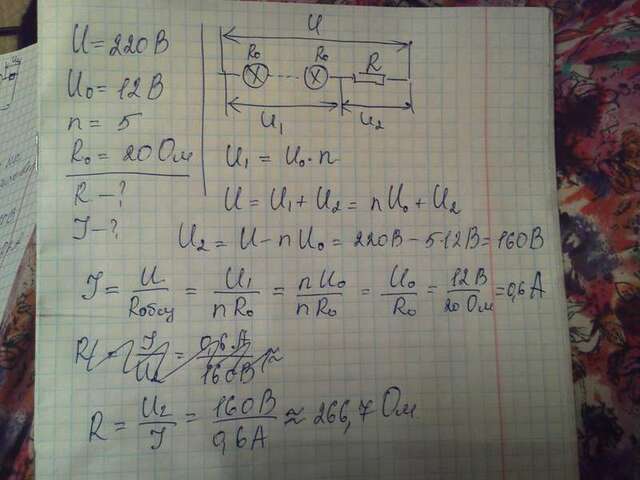 U = 220 В
U₀ = 12 В
n = 5
R₀ = 20 Ом
R – ?
I – ?
U
R₀ R₀ R
U₁ U₂
U₁ = U₀·n
U = U₁ + U₂ = nU₀ + U₂
U₂ = U – nU₀ = 220В – 5·12В = 160В
I = U/Rобщ = U₁/nR₀ = nU₀/nR₀ = U₀/R₀ = 12В/20 Ом = 0,6 А
R = I/U₂ = 0,6А/160В ≈
R = U₂/I = 160В/0,6А ≈ 266,7 Ом